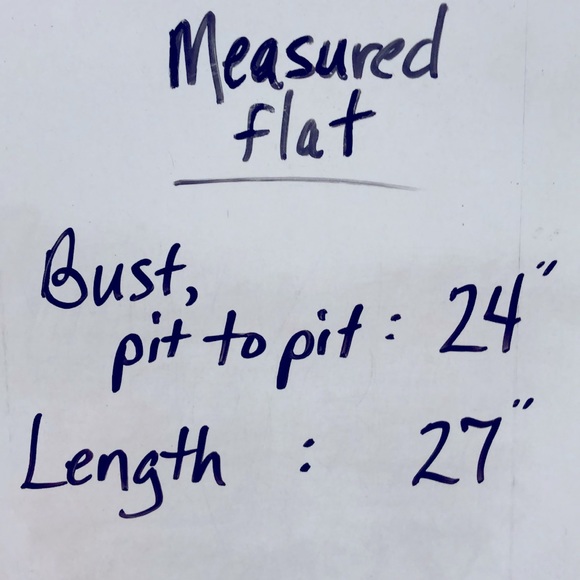 Measured
flat
Bust,
pit to pit : 24"
Length : 27"